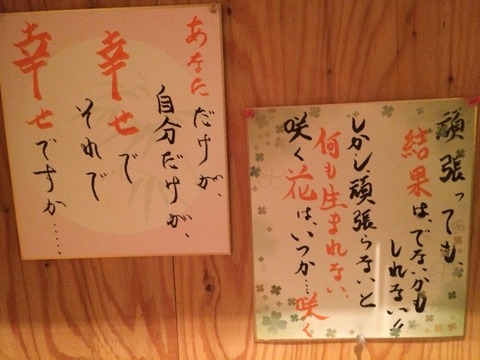 あなただけが、
自分だけが、
幸せで
それで
幸せですか....
頑張っても、
結果は、でないかも
しれない!!
しかし頑張らないと
何も生まれない
咲く花は、いつか…咲く